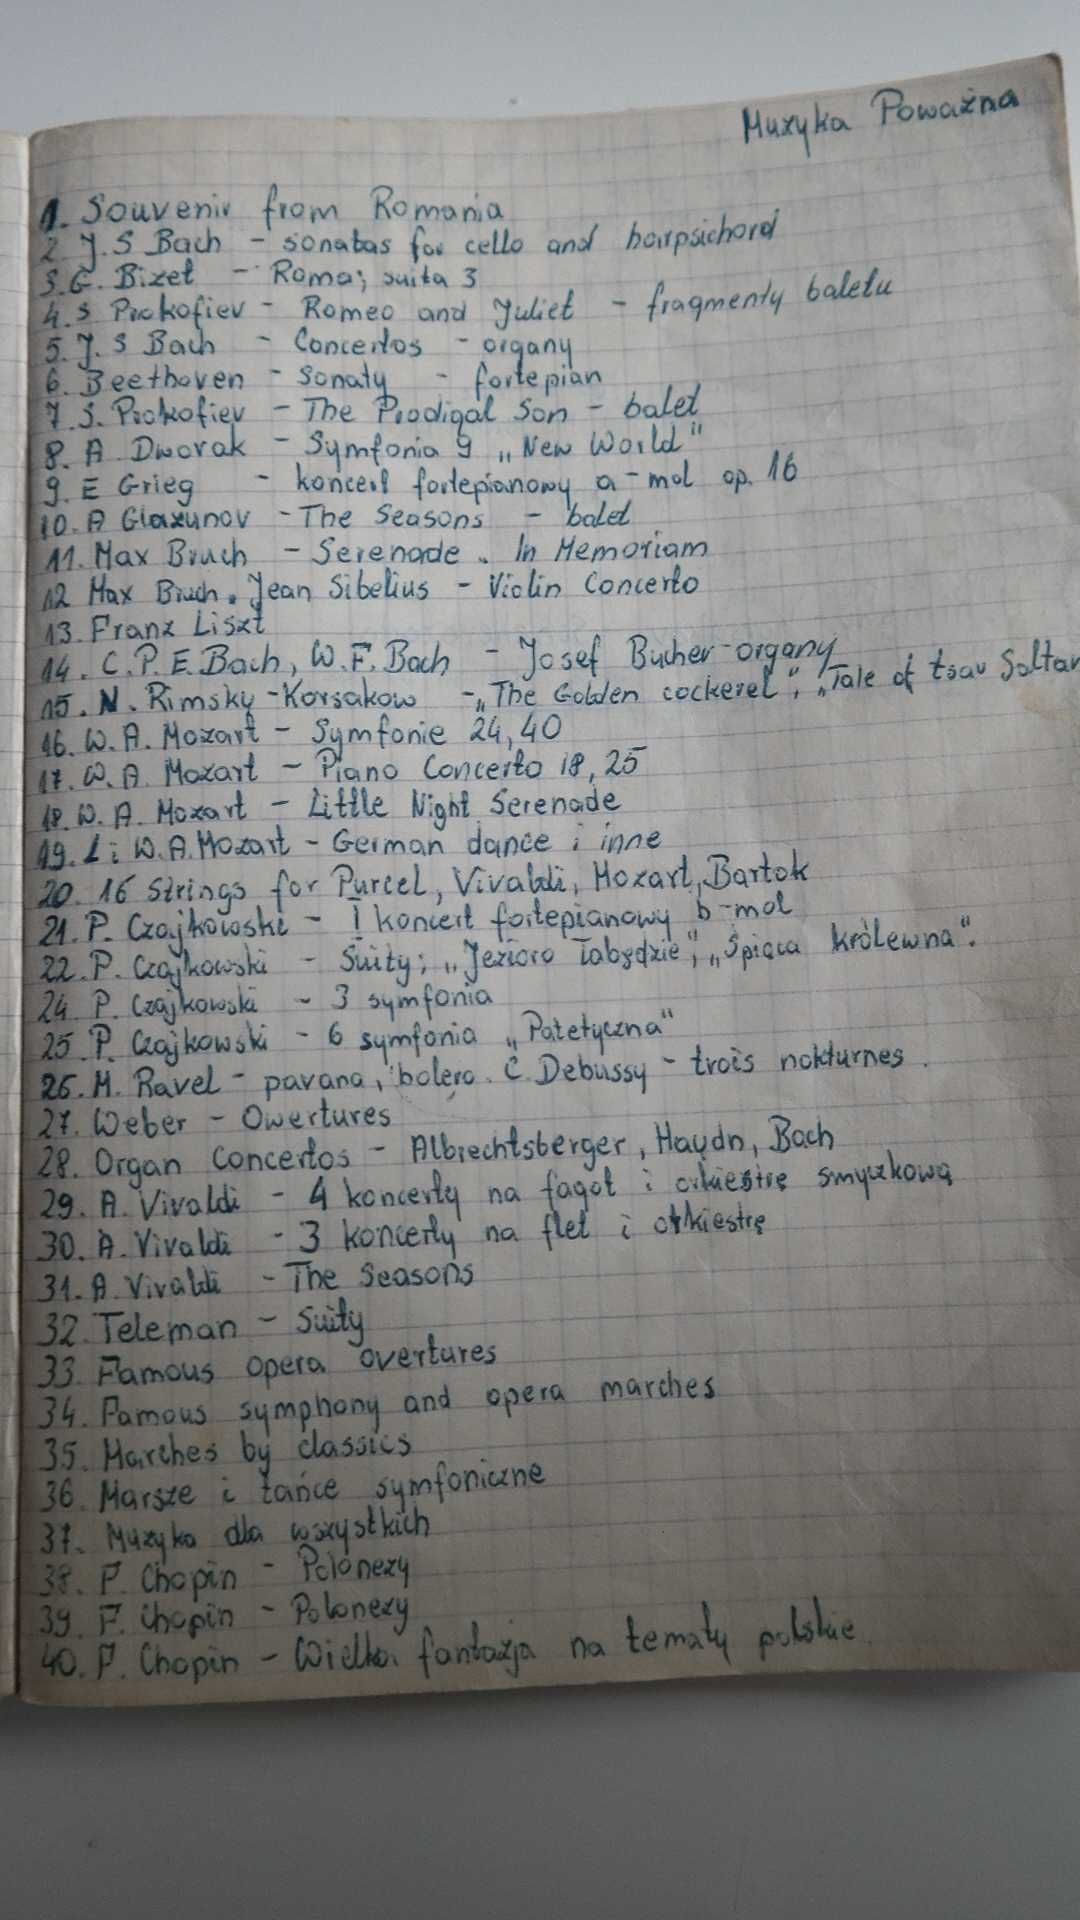 Muzyka Poważna
1. Souvenir from Romania
2. J. S Bach - sonatas for cello and hairpsichord
3. G. Bizet - Roma; suita 3
4. S Prokofiev - Romeo and Juliet - fragmenty baletu
5. J. S Bach - Concertos - organy
6. Beethoven - Sonaty - fortepian
7. S. Prokofiev - The Prodigal Son - balet
8. A Dworak - Symfonia 9 „New World"
9. E Grieg - koncert fortepianowy a-mol op. 16
10. A Glazunov - The Seasons - balet
11. Max Bruch - Serenade. In Memoriam
12 Max Bruch. Jean Sibelius - Violin Concerto
13. Franz Liszt
14. C. P. E. Bach, W. F. Bach - Josef Bucher-organy
15. N. Rimsky-Korsakow - „The Golden cockerel", „Tale of tsar Saltan
16. W. A. Mozart - Symfonie 24, 40
17. W. A. Mozart - Piano Concerto 18, 25
18. W. A. Mozart - Little Night Serenade
19. L i W. A. Mozart - German dance i inne
20. 16 Strings for Purcel, Vivaldi, Mozart, Bartok
21. P. Czajkowski - I koncert fortepianowy b-mol
22. P. Czajkowski - Suity; „Jezioro Łabędzie", „Śpiąca królewna".
24 P. Czajkowski - 3 symfonia
25 P. Czajkowski - 6 symfonia „Patetyczna"
26. M. Ravel - pavana, bolero. C. Debussy - trois nokturnes.
27. Weber - Owertures
28. Organ Concertos - Albrechtsberger, Haydn, Bach
29. A. Vivaldi - 4 koncerty na fagot i orkiestrę smyczkową
30. A. Vivaldi - 3 koncerty na flet i orkiestrę
31. A. Vivaldi - The Seasons
32. Teleman - Suity
33. Famous opera overtures
34. Famous symphony and opera marches
35. Marches by classics
36. Marsze i tańce symfoniczne
37. Muzyka dla wszystkich
38. F. Chopin - Polonezy
39. F. Chopin - Polonezy
40. F. Chopin - Wielka fantazja na tematy polskie.